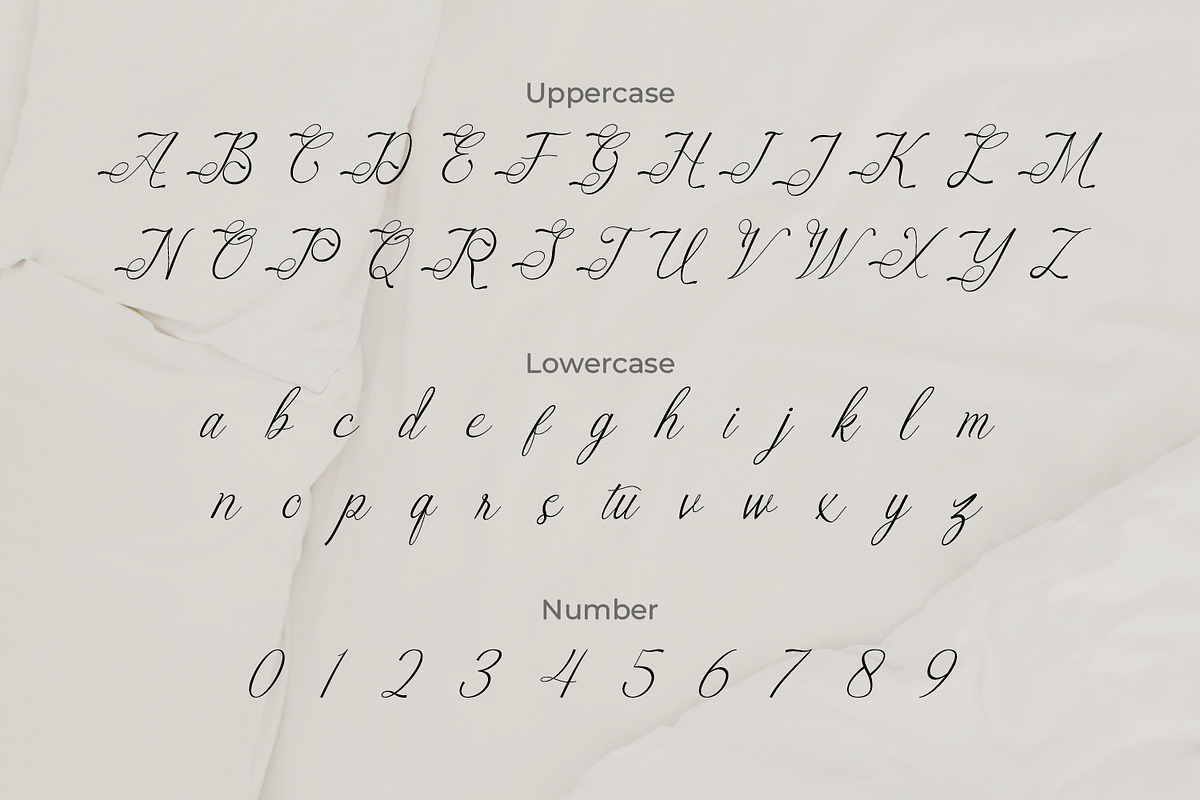 Uppercase
A B C D E F G H I J K L M
N O P Q R S T U V W X Y Z
Lowercase
a b c d e f g h i j k l m
n o p q r s tu v w x y z
Number
0 1 2 3 4 5 6 7 8 9